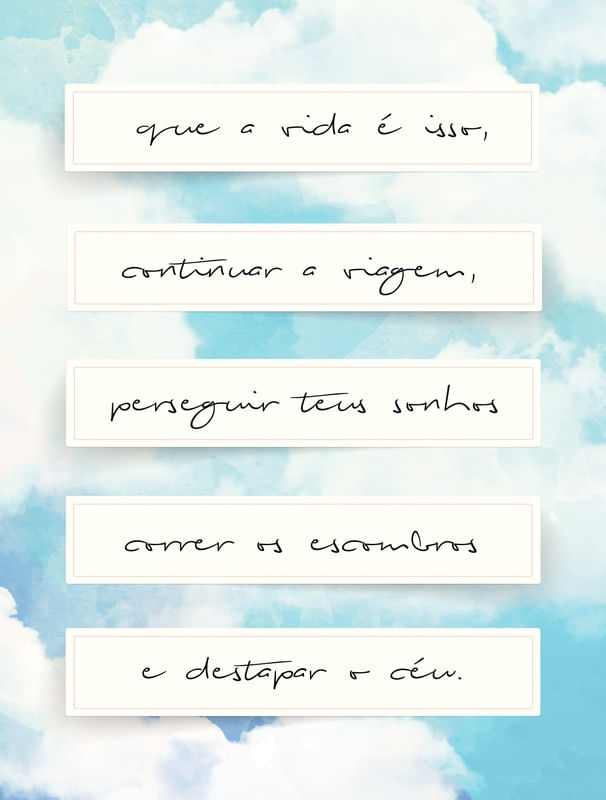 que a vida é isso,
continuar a viagem,
perseguir teus sonhos
correr os escombros
e destapar o céu.